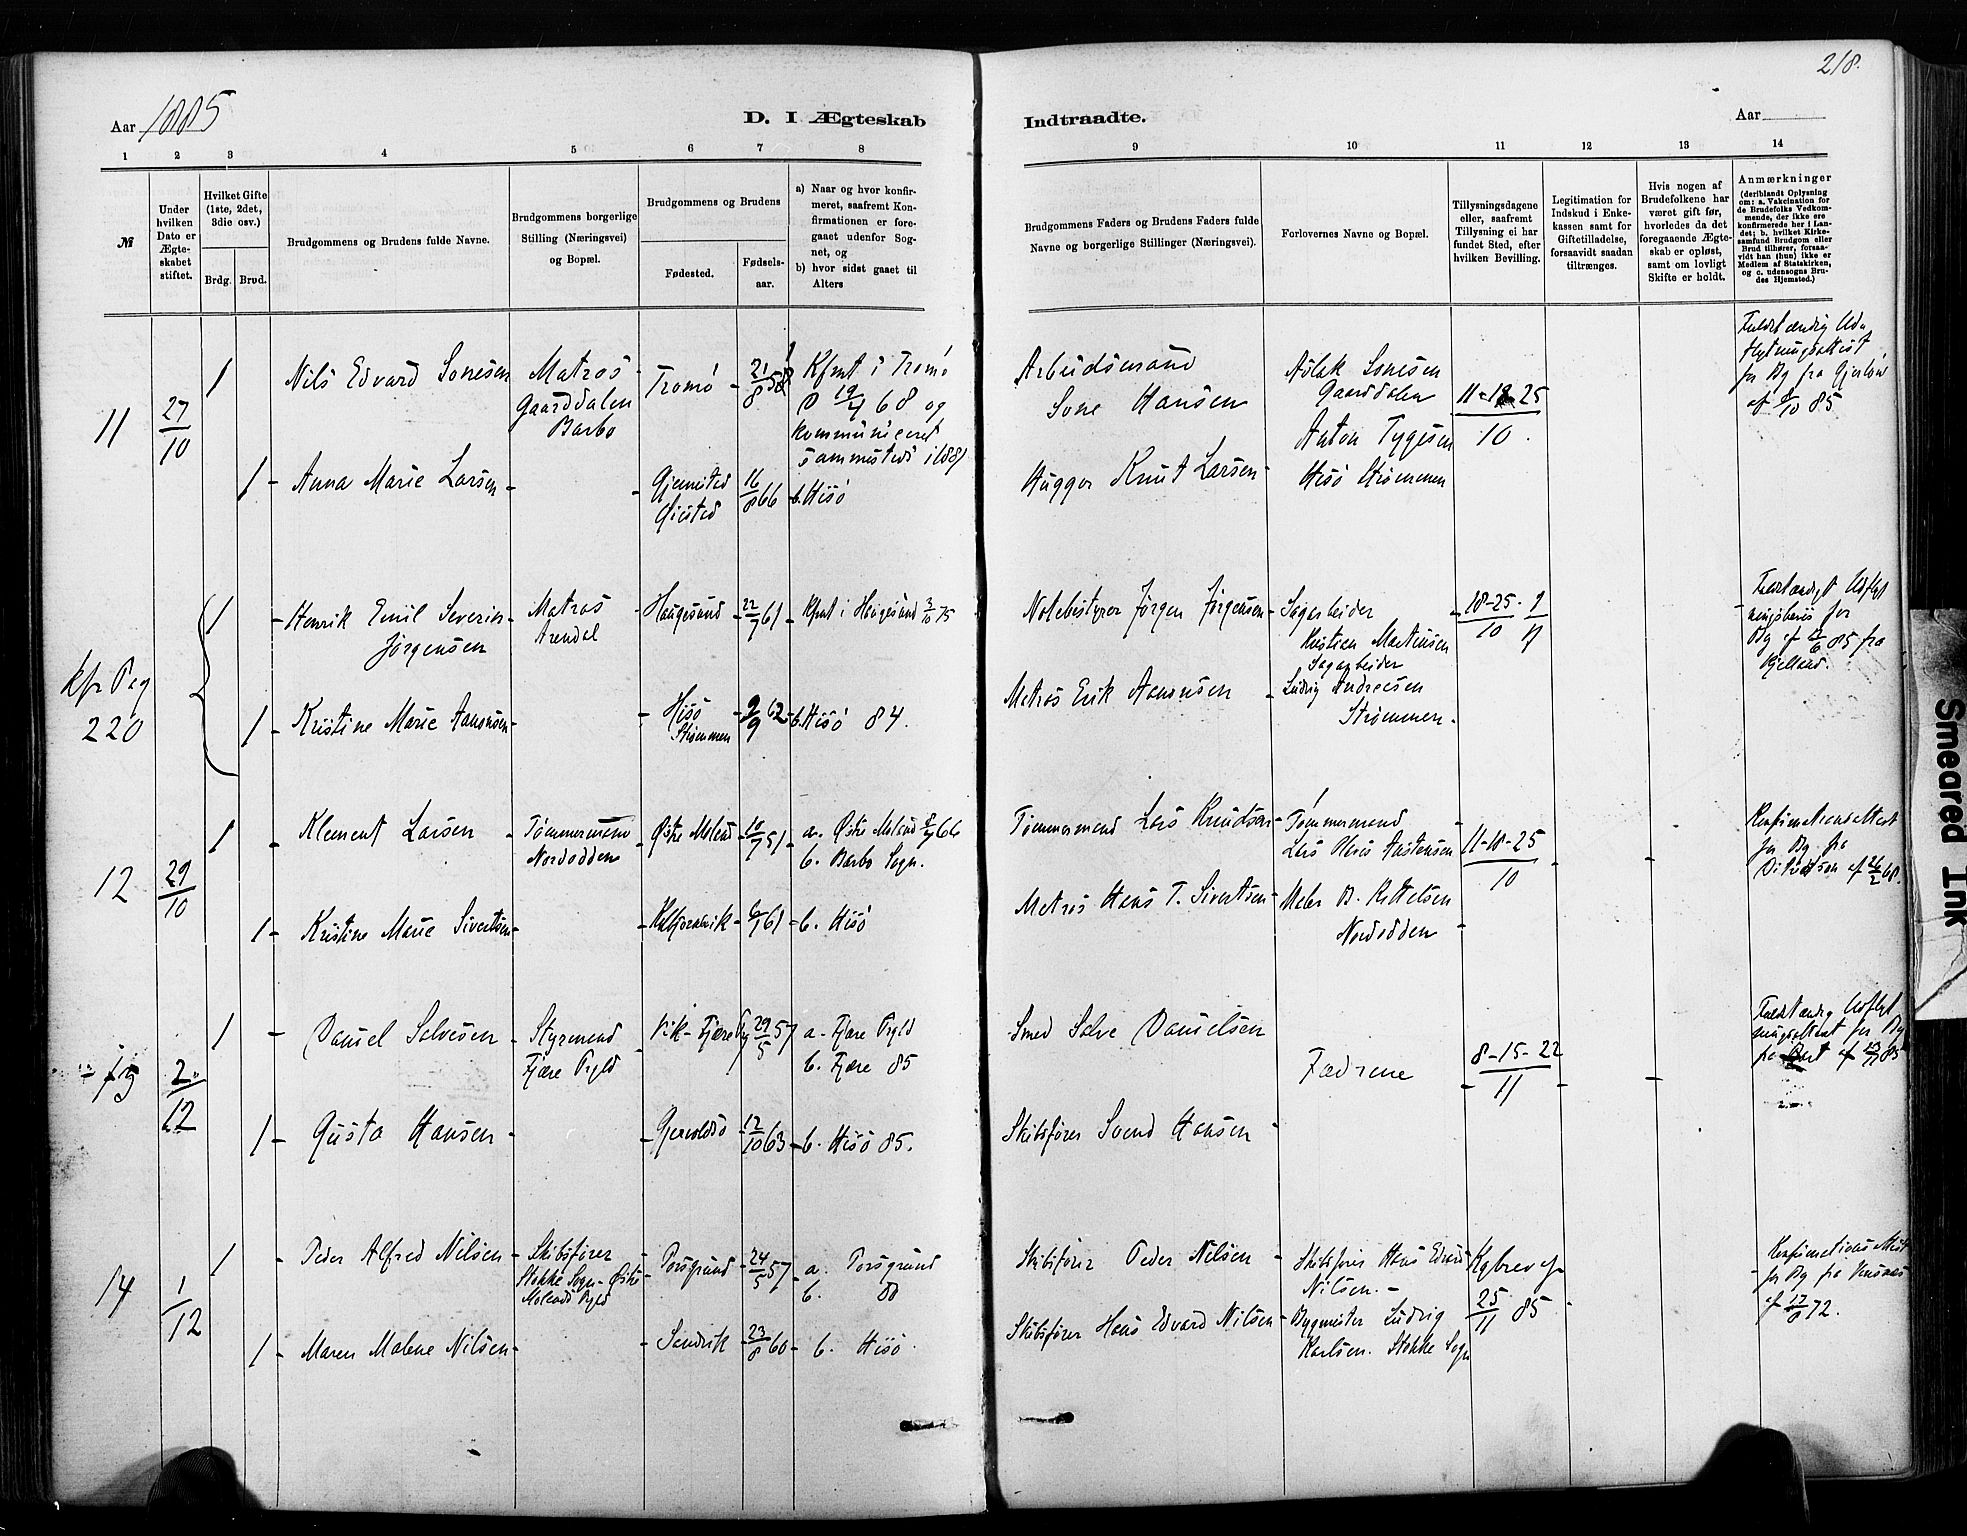 218.
Aar 1885
D. I Ægteskab
Indtraadte.
Aar
1 2 3 4 5 6 7 8 9 10 11 12 13 14
№
Under hvilken Dato er Ægteskabet stiftet.
Hvilket Gifte (1ste, 2det, 3die osv.)
Brdg. Brud.
Brudgommens og Brudens fulde Navne.
Brudgommens borgerlige Stilling (Næringsvei) og Bopæl.
Brudgommens og Brudens
Fødested.
Fødselsaar.
a) Naar og hvor konfirmeret, saafremt Konfirmationen er foregaaet udenfor Sognet, og
b) hvor sidst gaaet til Alters
Brudgommens Faders og Brudens Faders fulde Navne og borgerlige Stillinger (Næringsvei).
Forlovernes Navne og Bopæl.
Tillysningsdagene eller, saafremt Tillysning ei har fundet Sted, efter hvilken Bevilling.
Legitimation for Indskud i Enkekassen samt for Giftetilladelse, forsaavidt saadan tiltrænges.
Hvis nogen af Brudefolkene har været gift før, hvorledes da det foregaaende Ægteskab er opløst, samt om lovligt Skifte er holdt.
Anmærkninger
(deriblandt Oplysning om: a. Vakcination for de Brudefolks Vedkommende, der ikke ere konfirmerede her i Landet; b. hvilket Kirkesamfund Brudgom eller Brud tilhører, forsaavidt han (hun) ikke er Medlem af Statskirken, og c. udensogns Brudes Hjemsted.)
11
27/10
1 Nils Edvard Sonesen
Matros
Gaarddalen
Barbo
Tromö 21/8 58
Kfmt i Tromö
19/4 68 og
kommuniceret
sammesteds i 1881
Arbeidsmand
Sone Hansen
Aslak Sonesen
Gaarddalen
11-18-25
10.
Fuldstændig Ud-
flytningsattest
for Bg fra
af 9/10 85
1 Anna Marie Larsen
Gjerrestad 16/8 66
b. Hisö
Hugger Knut Larsen
Anton Tygesen
Hisö Strømmen
kfr Pag
220
1 Henrik Emil Severin
Jørgensen
Matros
Arendal
Haugesund 22/7 61
Kfmt i Haugesund 3/10 75
Notebestyrer Jørgen Jørgensen
Sagarbeider
Kristian Martinsen
18-25 . 1
10 11
for
85 fra
1 Kristine Marie Aanonsen
Hisö
Strømmen
9/9 62
b. Hisö 84.
Matros Erik Aanonsen
Sagarbeider
Ludvig Andresen
Strømmen
12
29/10
1 Klement Larsen
Tømmermand
Nordodden
Østre Moland 10/7 51
a. Østre Moland 66
b. Barbo Sogn.
Tømmermand Lars Knudsen
Tømmermand
Lars Austensen
11-18-25
10
Konfirmationsattest
for Bg. fra
af 26/2 68.
1 Kristine Marie Sivertsen
61
b. Hisö
Matros Hans T. Sivertsen
Maler B. Kittelsen
Nordodden
2/12
1 Daniel Salvesen
Styrmand
Fjære Pgld
Vik - Fjære 29/5 57
a. Fjære Pgld
b. Fjære 85
Smed Salve Danielsen
Fædrene
8-15-22
11
Fuldstændig Udflyt
ningsattest for Bg
85
1 Gusta Hansen
Gjervoldsö 12/10 63
b. Hisö 85.
Skibsfører Svend Hansen
14
1/12
1 Peder Alfred Nilsen
Skibsfører
Stokke Sogn - Østre
Molands Pgld
Porsgrund 24/5 57
a. Porsgrund
b. 80
Skibsfører Peder Nilsen
Skibsfører Hans Edvard
Nilsen.
Kgbrev af
25/11 85
Konfirmations Attest
for Bg fra
72.
1 Maren Malene Nilsen
Sandvik 23/8 60
b. Hisö.
Skibsfører Hans Edvard Nilsen
Bygmester Ludvig
Karlsen. Stokke Sogn
Smeared Ink